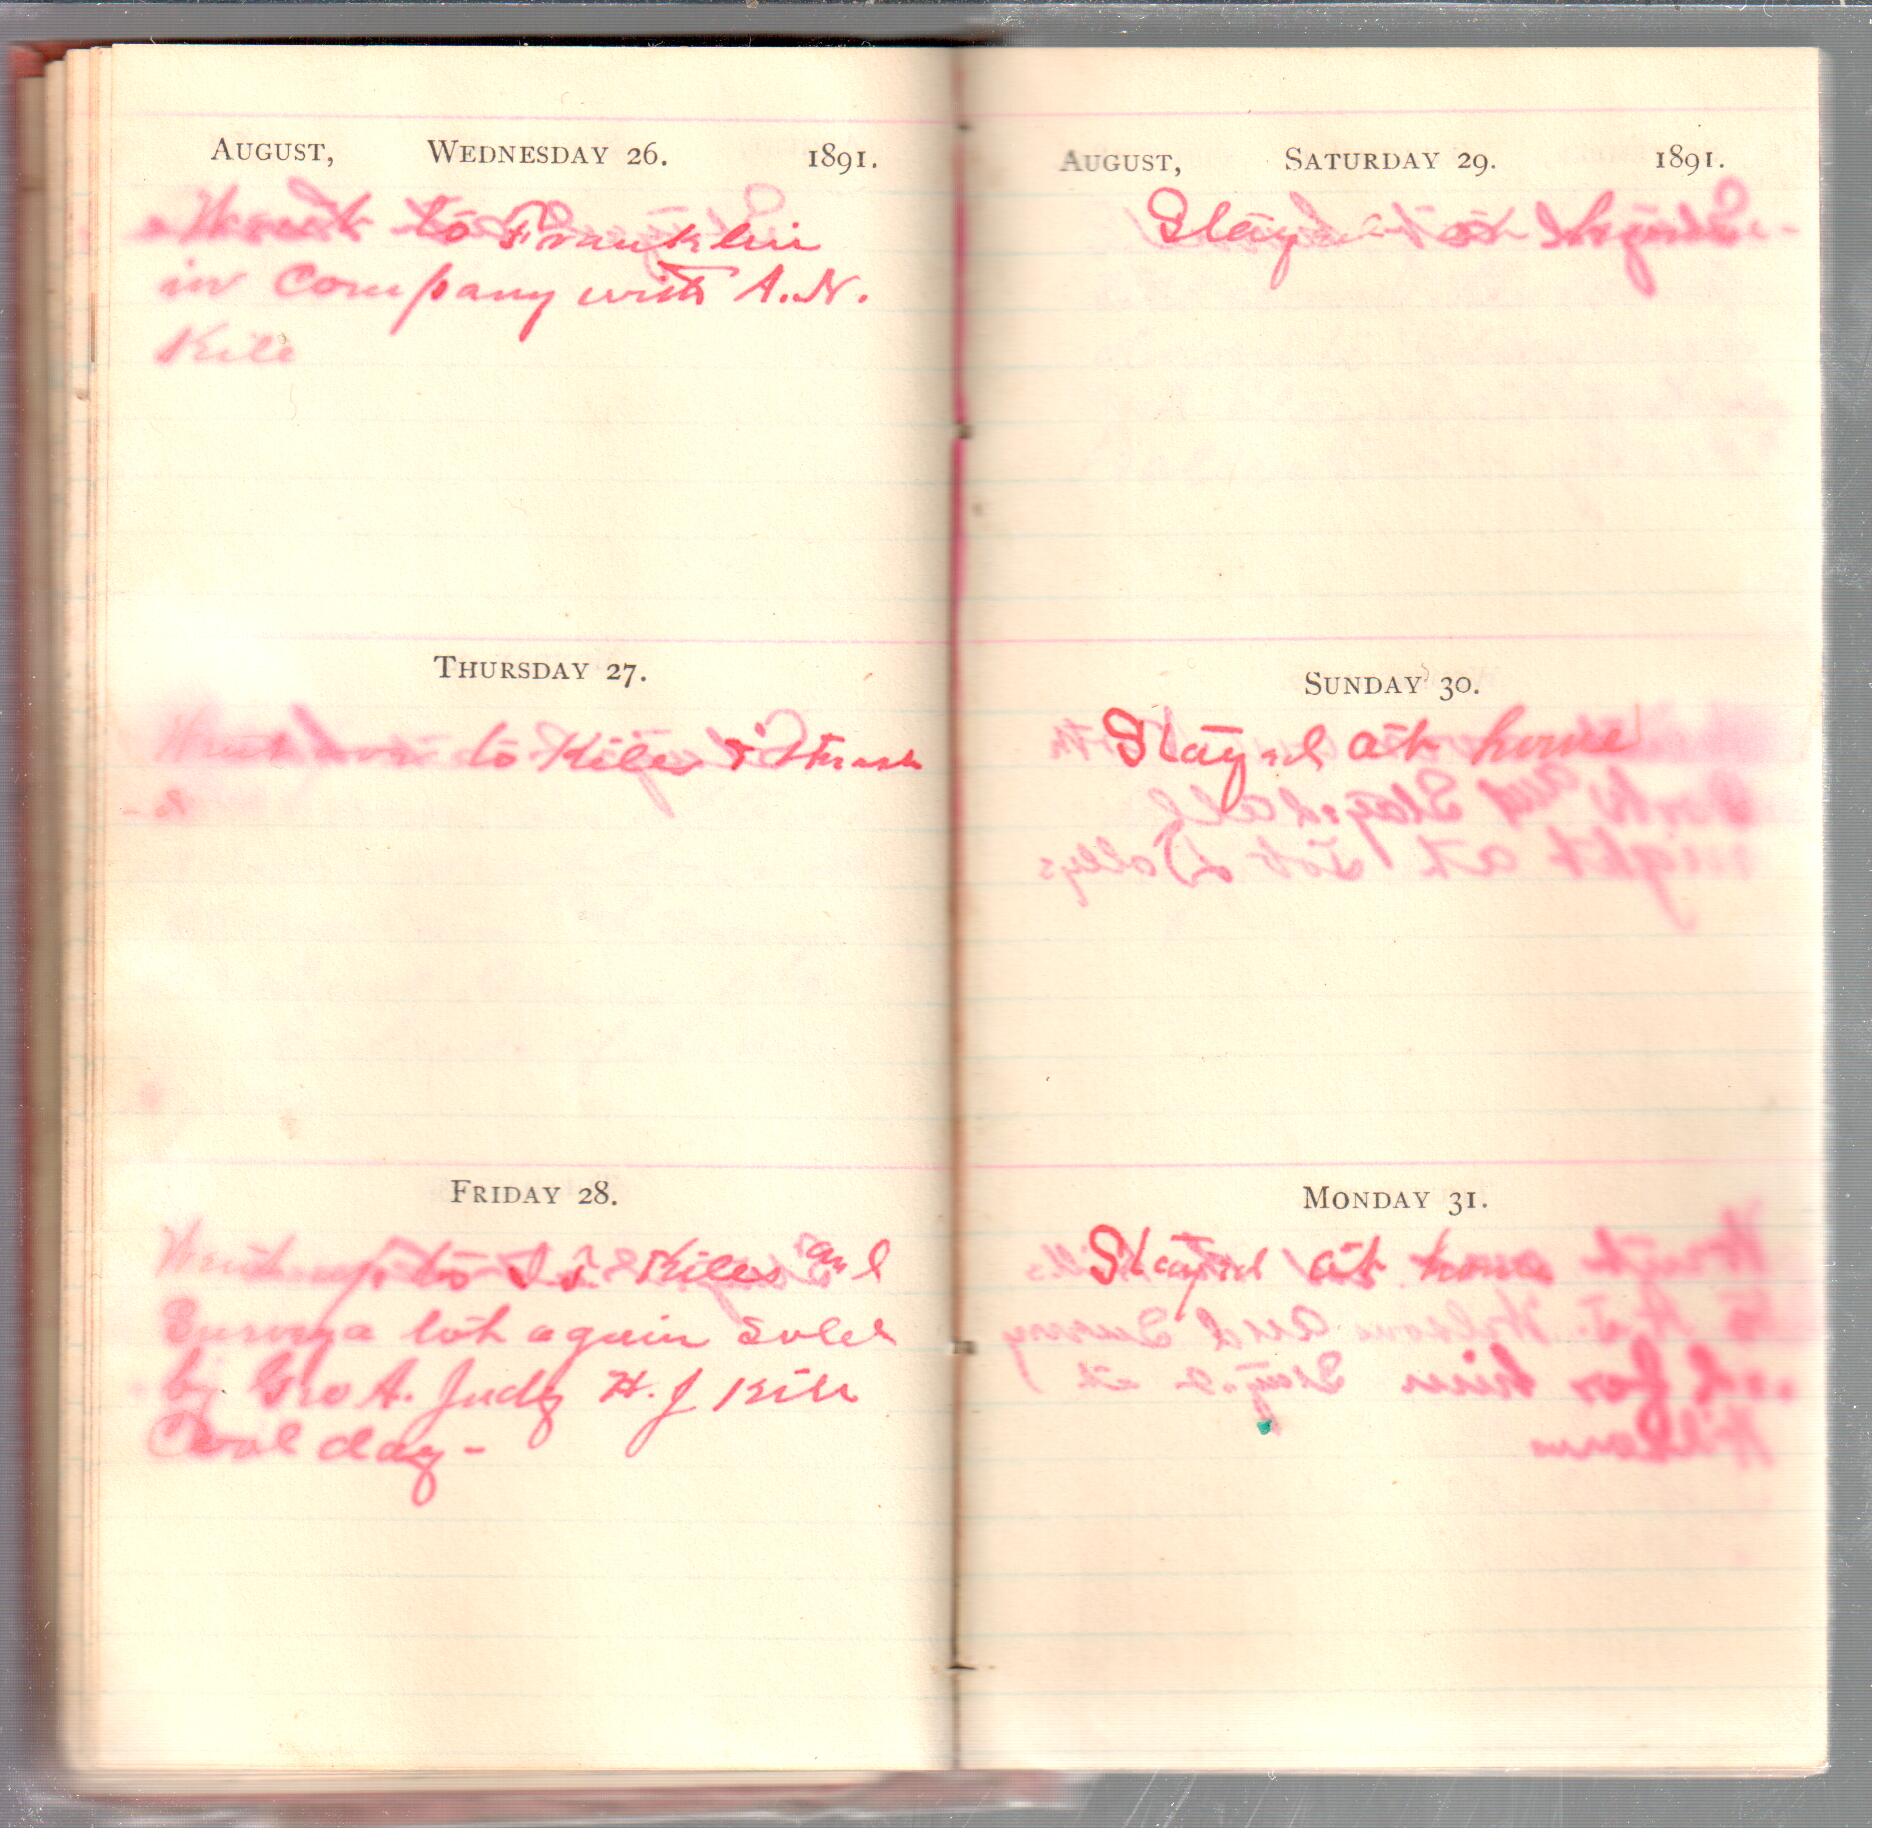 AUGUST, WEDNESDAY 26. 1891.
Went to Franklin
in Company with A. N.
Kile
THURSDAY 27.
Went over to Kiles &
FRIDAY 28.
Went up to Kiles and
a lot again sold
by Geo A. Judy H. J Kile
Cool day -
AUGUST, SATURDAY 29. 1891.
Stayed at
SUNDAY 30.
Stayed at home
MONDAY 31.
Stayed at home